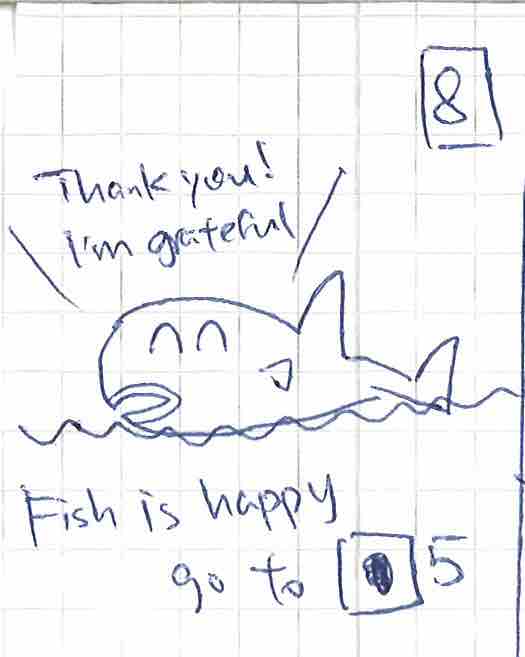 8
Thank you!
I'm grateful
Fish is happy
go to 5